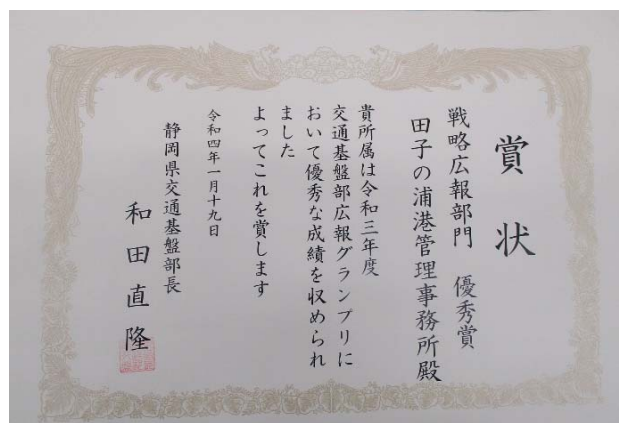 賞状
戦略広報部門 優秀賞
田子の浦港管理事務所殿
貴所属は令和三年度
交通基盤部広報グランプリに
おいて優秀な成績を収められ
ました
よってこれを賞します
令和四年一月十九日
静岡県交通基盤部長
和田直隆